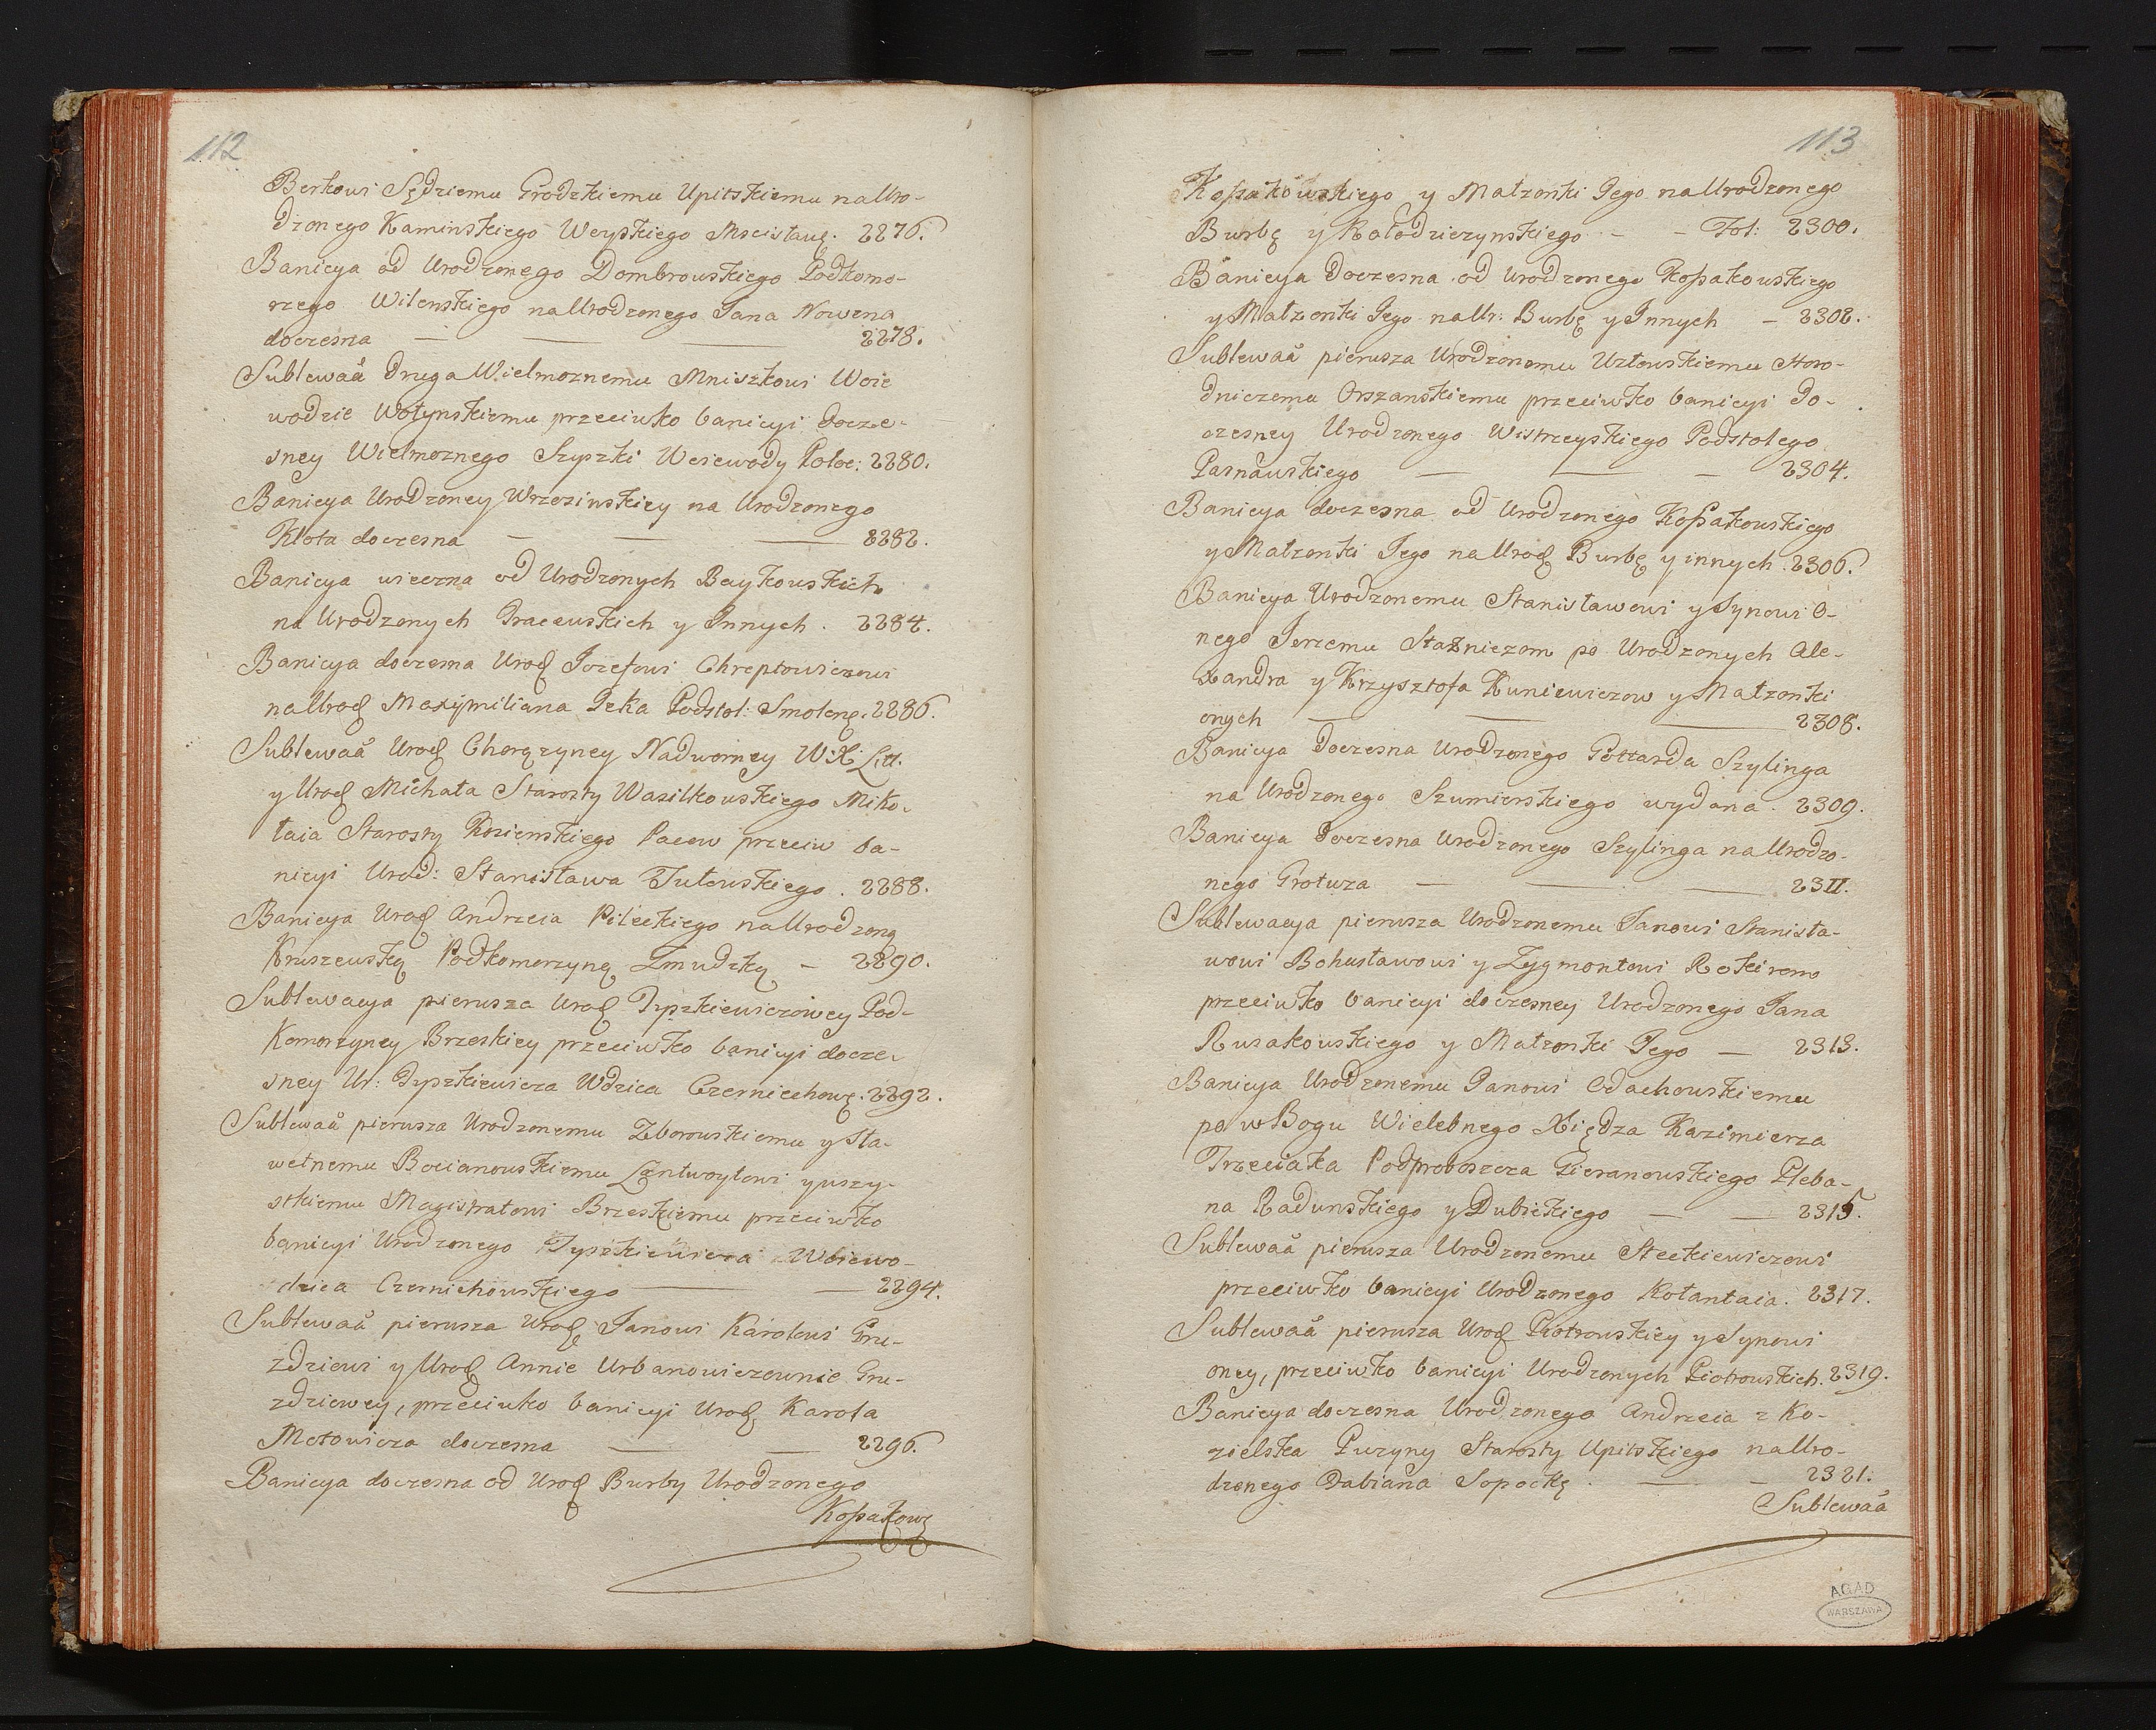 112
Berkowi Sędziemu Grodzkiemu Upitskiemu na Uro-
dzonego Kaminskiego Woyskiego Mscisławſ. 2276.
Banicya od Urodzonego Dombrowskiego Podkomo-
rzego Wilenskiego na Urodzonego Jana Nowzna
doczesna — 2278.
Sublewaã druga Wielmoznemu Mniszkowi Woie
wodzie Wołynskiemu przeciwko banicyi docze-
sney Wielmoznego Szyszki Woiewody Połoc: 2280.
Banicya Urodzoney Wrzozinskiey na Urodzonego
Kłota doczesna — 2282.
Banicya wieczna od Urodzonych Baykowskich
na Urodzonych Graczewskich y Innych. 2284.
Banicya doczesna Urod Jozefowi Chreptowiczowi
na Urod Maxymiliana Jeka Podstol: Smolenſ. 2286.
Sublewaã Urod Chorązyney Nadworney W: X: Litt.
y Urod Michała Starosty Wasilkowskiego Miko-
łaia Starosty Pacow przeciw ba-
nicyi Urod: Stanisława Tutowskiego. 2288.
Banicya Urod Andrzeia Pileckiego na Urodzoną
Kruszewską Podkomorzyną Zmudzką — 2290.
Sublewacya pierwsza Urod Tyszkiewiczowey Pod-
komorzyney Brzeskiey przeciwko banicyi docze-
sney Ur: Tyszkiewicza Wdzica Czerniechowſ. 2292.
Sublewaã pierwsza Urodzonemu Zborowskiemu y Sła-
wetnemu Bocianowskiemu Lentwoytowi y wszy-
stkiemu Magistratowi Brzeskiemu przeciwko
banicyi Urodzonego Tyszkiewicza Woiewo-
dzica Czernichowskiego — 2294.
Sublewaã pierwsza Urod Janowi Karolowi Gru-
zdziowi y Urod Annie Urbanowiczownie Gru-
zdziowey, przeciwko banicyi Urod Karola
Motowicza doczesna — 2296.
Banicya doczesna od Urod Burby Urodzonego
Koſsakowſ
113
Koſsakowskiego y Małzonki Jego na Urodzonego
Burbę y Kołodzieczynskiego — Fol: 2300.
Banicya doczesna od Urodzonego Koſsakowskiego
y Małzonki Jego na Ur: Burbę y Innych — 2302.
Sublewaã pierwsza Urodzonemu Uzłowskiemu Horo-
dniczemu Orszanskiemu przeciwko banicyi do-
czesney Urodzonego Wistrzeyskiego Podstolego
Parnawskiego — 2304.
Banicya doczesna od Urodzonego Koſsakowskiego
y Małzonki Jego na Urod Burbę y innych. 2306.
Banicya Urodzonemu Stanisławowi y Synowi o-
nego Jerzemu Stazniczom po Urodzonych Ale-
xandra y Krzysztofa Kuniewiczow y Małzonki
onych — 2308.
Banicya doczesna Urodzonego Gottarda Szylinga
na Urodzonego Szumierskiego wydana. 2309.
Banicya doczesna Urodzonego Szylinga na Urodzo-
nego Grotuza — 2311.
Sublewacya pierwsza Urodzonemu Janowi Stanisła-
wowi Bohusławowi y Zygmontowi Rokirom
przeciwko banicyi doczesney Urodzonego Jana
Rusakowskiego y Małzonki Jego — 2313.
Banicya Urodzonemu Panowi Odachowskiemu
po w Bogu Wielebnego Xiędza Kazimierza
Trzeciaka Podproboszcza Gieranowskiego Pleba-
na Radunskiego y Dubickiego — 2315.
Sublewaã pierwsza Urodzonemu Steckiewiczowi
przeciwko banicyi Urodzonego Kołłantaia. 2317.
Sublewaã pierwsza Urod Piotrowskiey y Synowi
oney, przeciwko banicyi Urodzonych Piotrowskich. 2319.
Banicya doczesna Urodzonego Andrzeia z Ko-
zielska Puzyny Starosty Upitskiego na Uro-
dzonego Dabiana Sopoćkę. — 2321.
Sublewaã
AGAD
WARSZAWA